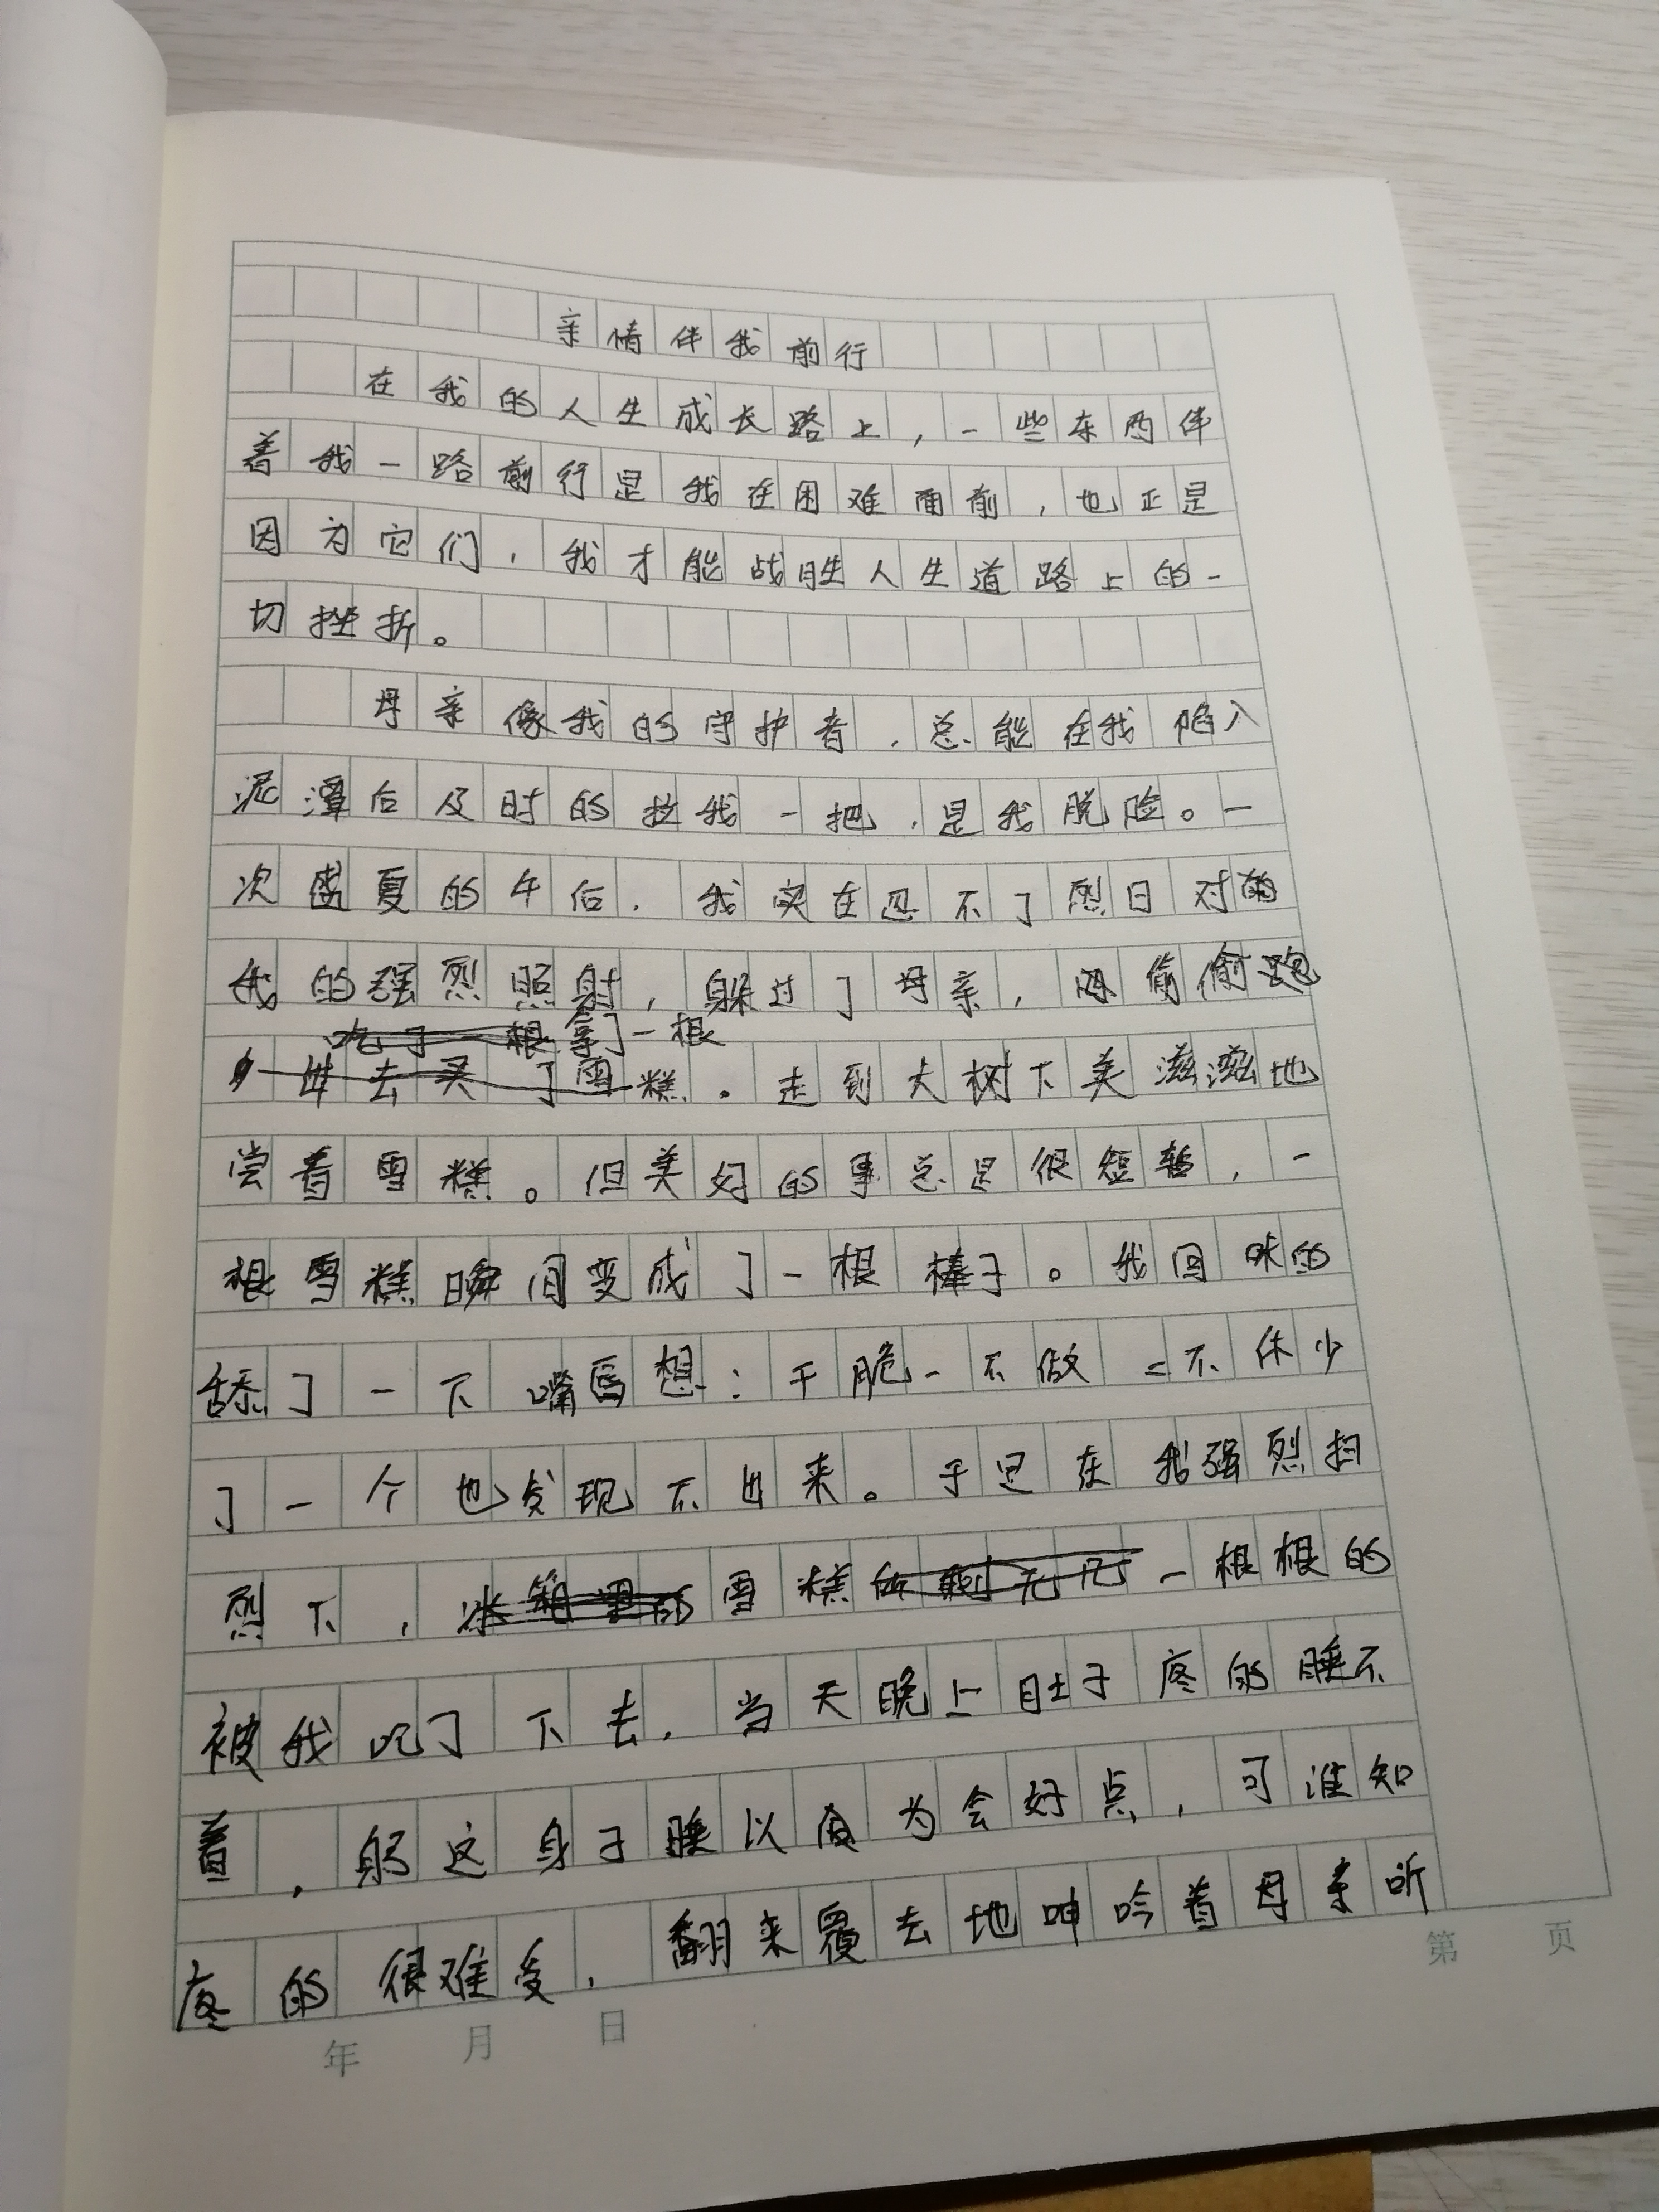 亲情伴我前行
在我的人生成长路上，一些东西伴
着我一路前行是我在困难面前，也正是
因为它们，我才能战胜人生道路上的一
切挫折。
母亲像我的守护者，总能在我陷入
泥潭后及时的拉我一把，是我脱险。一
次盛夏的午后，我实在忍不了烈日对
我的强烈照射，躲过了母亲，偷偷跑
拿了一根
出去买了雪糕。走到大树下美滋滋地
尝着雪糕。但美好的事总是很短暂，一
根雪糕瞬间变成了一根棒子。我回味的
舔了一下嘴唇想：干脆一不做二不休少
了一个也发现不出来。于是在我强烈扫
烈下，雪糕一根根的
被我吃了下去，当天晚上肚子疼的睡不
着，躬这身子睡以为会好点，可谁知
疼的很难受，翻来覆去地呻吟着母亲听
年 月 日
第 页